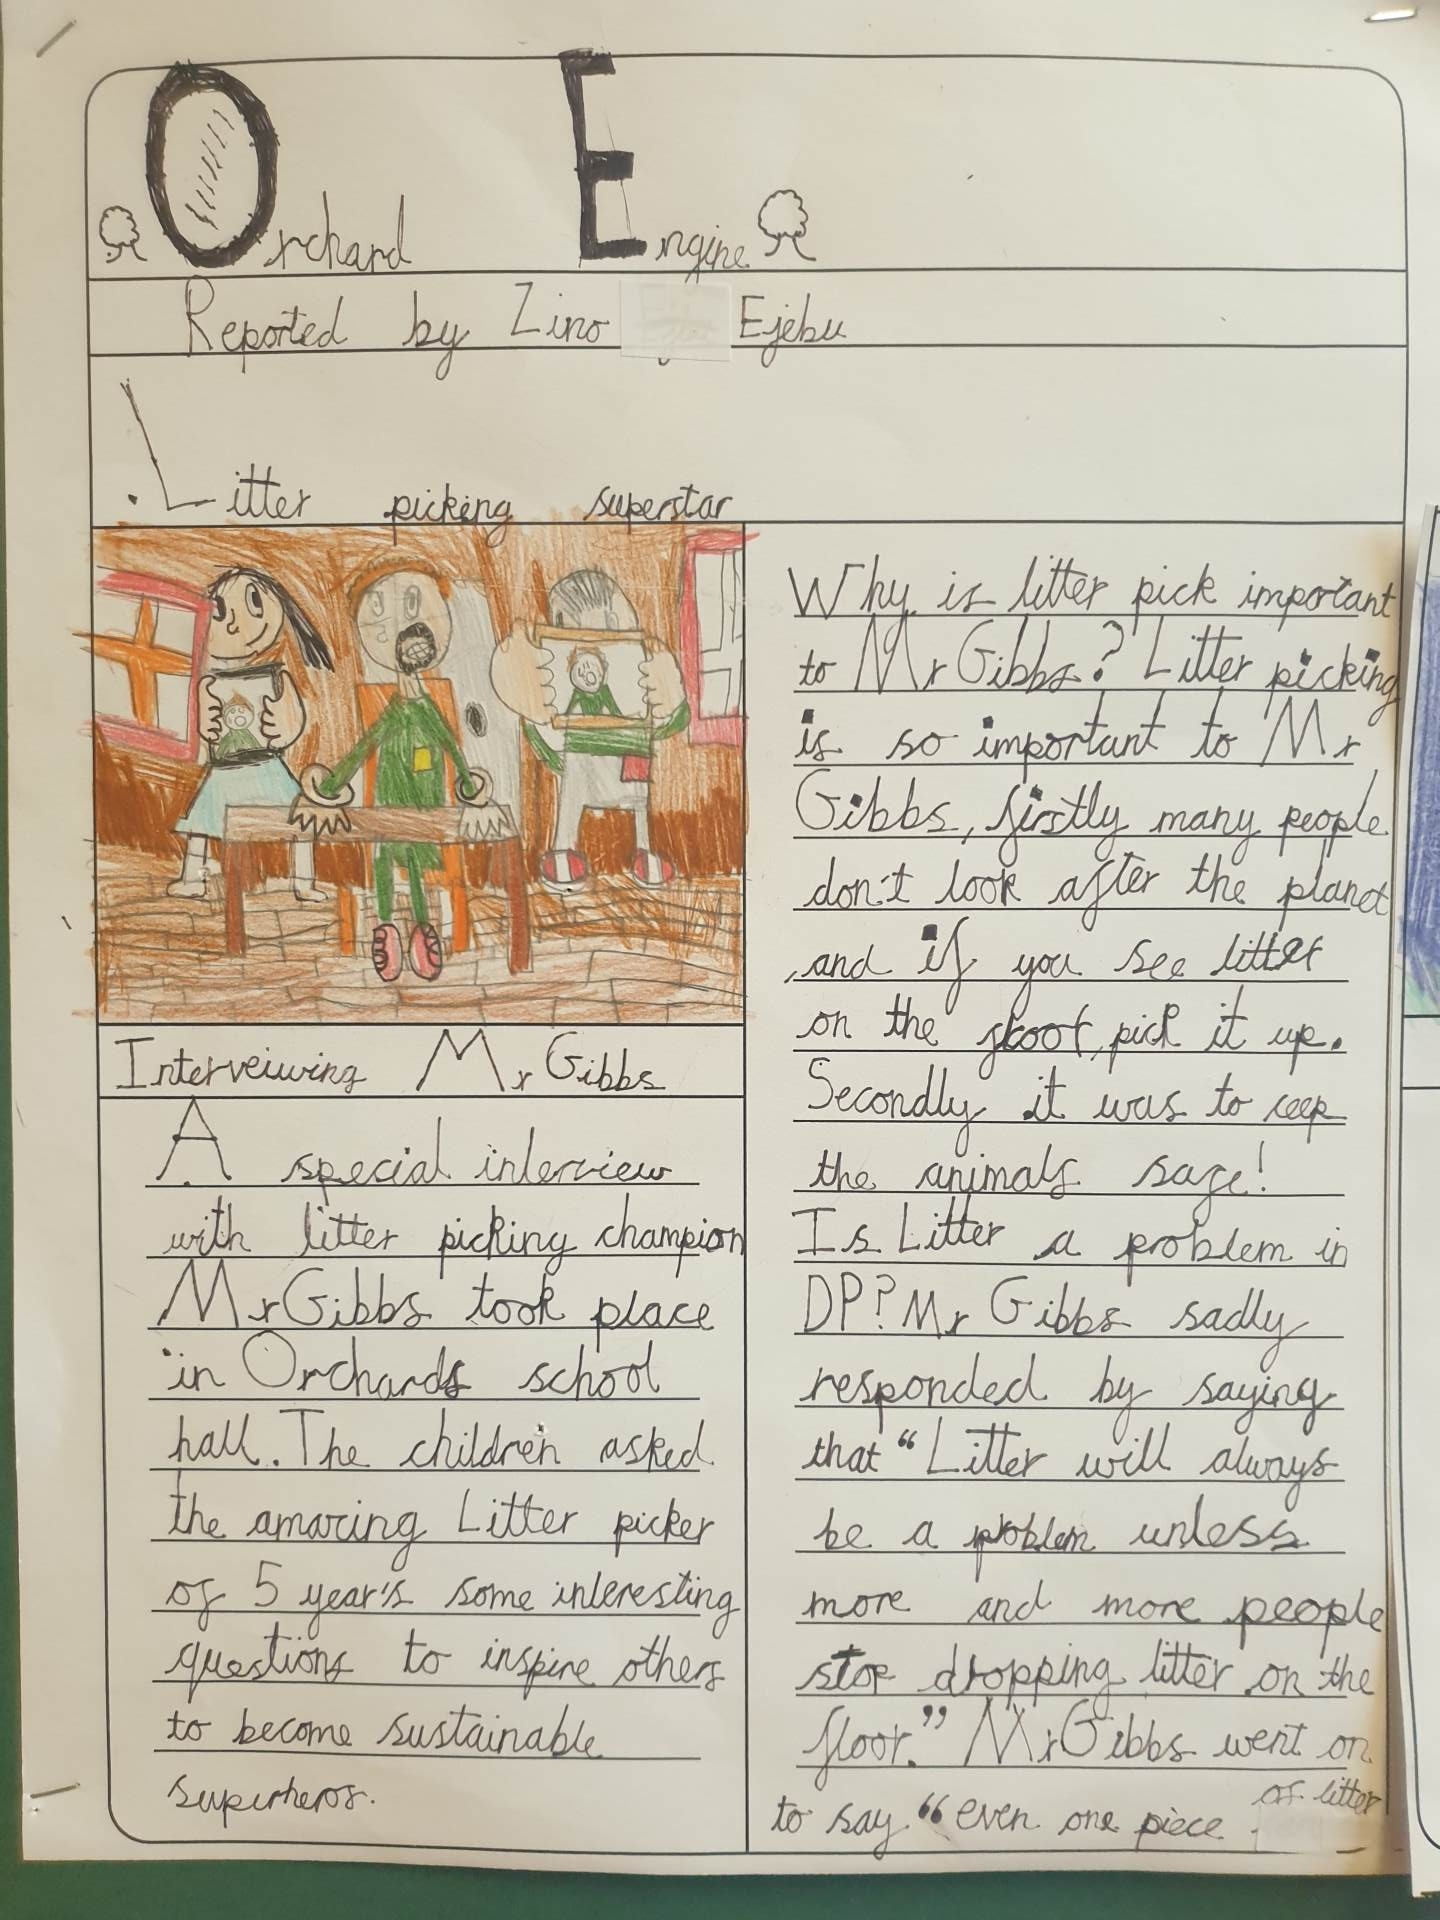 Orchard Engine
Reported by Zino Ejebu
Litter picking superstar
Interveiwing Mr Gibbs
A special interview
with litter picking champion
Mr Gibbs took place
in Orchards school
hall. The children asked
the amazing Litter picker
of 5 year's some interesting
questions to inspire others
to become sustainable
superheros.
Why is litter pick important
to Mr Gibbs? Litter picking
is so important to Mr
Gibbs, firstly many people
don't look after the planet
and if you see litter
on the floor, pick it up.
Secondly it was to keep
the animals safe!
Is Litter a problem in
DP? Mr Gibbs sadly
responded by saying
that "Litter will always
be a problem unless
more and more people
stop dropping litter on the
floor." Mr Gibbs went on
to say "even one piece of litter